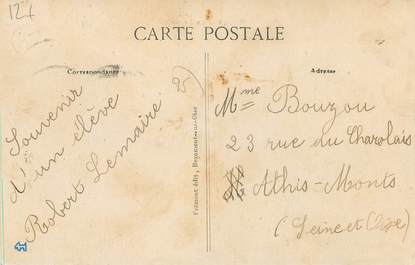 127
CARTE POSTALE
Correspondance
Adresse
Souvenir
d'un élève
Robert Lemaire
2-)
Frémont édit., Beaumont-sur-Oise
Mme Bouzou
23 rue du Charolais
Athis-Monts
(Seine et Oise)